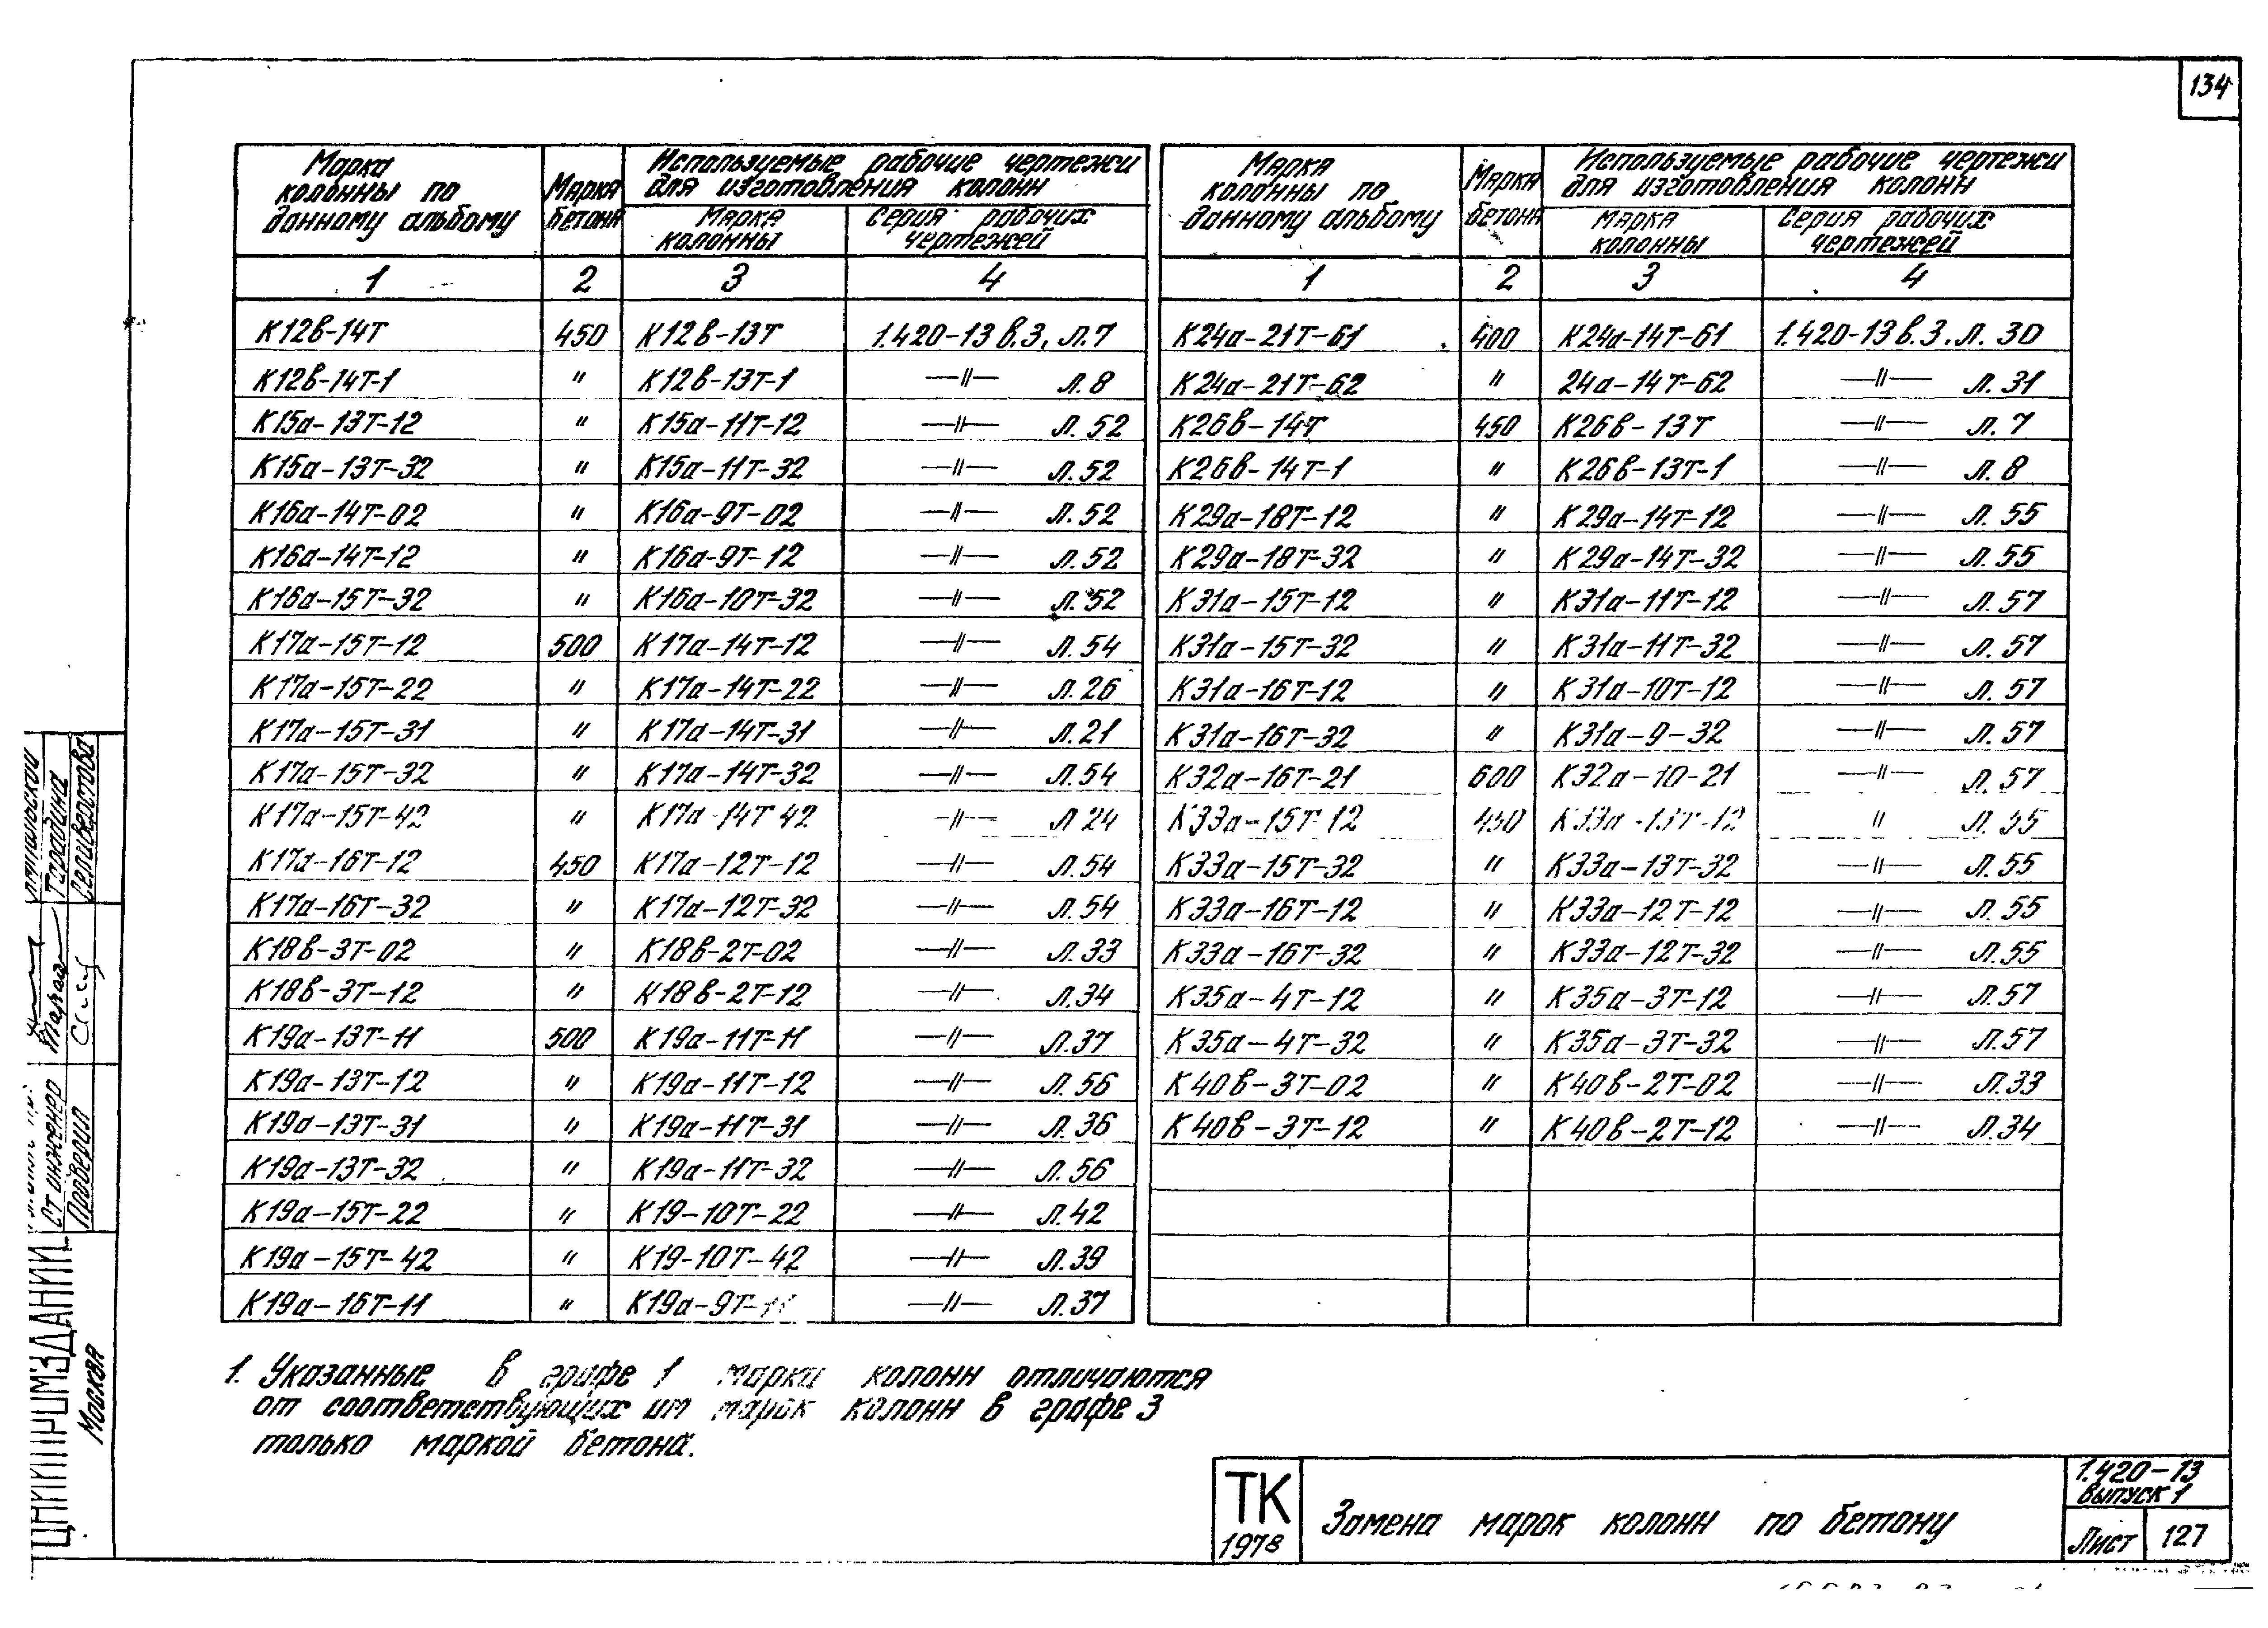 134
Марка колонны по данному альбому | Марка бетона | Используемые рабочие чертежи для изготовления колонн
Марка колонны | Серия рабочих чертежей
1 | 2 | 3 | 4
К12в-14Т | 450 | К12в-13Т | 1.420-13 в.3. л.7
К12в-14Т-1 | " | К12в-13Т-1 | —〃— л.8
К15а-13Т-12 | " | К15а-11Т-12 | —〃— л.52
К15а-13Т-32 | " | К15а-11Т-32 | —〃— л.52
К16а-14Т-02 | " | К16а-9Т-02 | —〃— л.52
К16а-14Т-12 | " | К16а-9Т-12 | —〃— л.52
К16а-15Т-32 | " | К16а-10Т-32 | —〃— л.52
К17а-15Т-12 | 500 | К17а-14Т-12 | —〃— л.54
К17а-15Т-22 | " | К17а-14Т-22 | —〃— л.26
К17а-15Т-31 | " | К17а-14Т-31 | —〃— л.21
К17а-15Т-32 | " | К17а-14Т-32 | —〃— л.54
К17а-15Т-42 | " | К17а 14Т 42 | —〃— л 24
К17а-16Т-12 | 450 | К17а-12Т-12 | —〃— л.54
К17а-16Т-32 | " | К17а-12Т-32 | —〃— л.54
К18в-3Т-02 | " | К18в-2Т-02 | —〃— л.33
К18в-3Т-12 | " | К18в-2Т-12 | —〃— л.34
К19а-13Т-11 | 500 | К19а-11Т-11 | —〃— л.37
К19а-13Т-12 | " | К19а-11Т-12 | —〃— л.56
К19а-13Т-31 | " | К19а-11Т-31 | —〃— л.36
К19а-13Т-32 | " | К19а-11Т-32 | —〃— л.56
К19а-15Т-22 | " | К19-10Т-22 | —〃— л.42
К19а-15Т-42 | " | К19-10Т-42 | —〃— л.39
К19а-16Т-11 | " | К19а-9Т-11 | —〃— л.37
Марка колонны по данному альбому | Марка бетона | Используемые рабочие чертежи для изготовления колонн
Марка колонны | Серия рабочих чертежей
1 | 2 | 3 | 4
К24а-21Т-61 | 400 | К24а-14Т-61 | 1.420-13 в.3. л. 30
К24а-21Т-62 | " | 24а-14Т-62 | —〃— л.31
К26в-14Т | 450 | К26в-13Т | —〃— л.7
К26в-14Т-1 | " | К26в-13Т-1 | —〃— л.8
К29а-18Т-12 | " | К29а-14Т-12 | —〃— л.55
К29а-18Т-32 | " | К29а-14Т-32 | —〃— л.55
К31а-15Т-12 | " | К31а-11Т-12 | —〃— л.57
К31а-15Т-32 | " | К31а-11Т-32 | —〃— л.57
К31а-16Т-12 | " | К31а-10Т-12 | —〃— л.57
К31а-16Т-32 | " | К31а-9-32 | —〃— л.57
К32а-16Т-21 | 600 | К32а-10-21 | —〃— л.57
К33а-15Т 12 | 450 | К33а-13Т-12 | 〃 л.55
К33а-15Т-32 | " | К33а-13Т-32 | —〃— л.55
К33а-16Т-12 | " | К33а-12Т-12 | —〃— л.55
К33а-16Т-32 | " | К33а-12Т-32 | —〃— л.55
К35а-4Т-12 | " | К35а-3Т-12 | —〃— л.57
К35а-4Т-32 | " | К35а-3Т-32 | —〃— л.57
К40в-3Т-02 | " | К40в-2Т-02 | —〃— л.33
К40в-3Т-12 | " | К40в-2Т-12 | —〃— л.34
1. Указанные в графе 1 марки колонн отличаются
от соответствующих им марок колонн в графе 3
только маркой бетона.
ТК
1978
Замена марок колонн по бетону
1.420-13
выпуск 1
Лист 127
Тарадина
Селиверстова
Ст инженер
Проверил
ЦНИИПРОМЗДАНИЙ
Москва